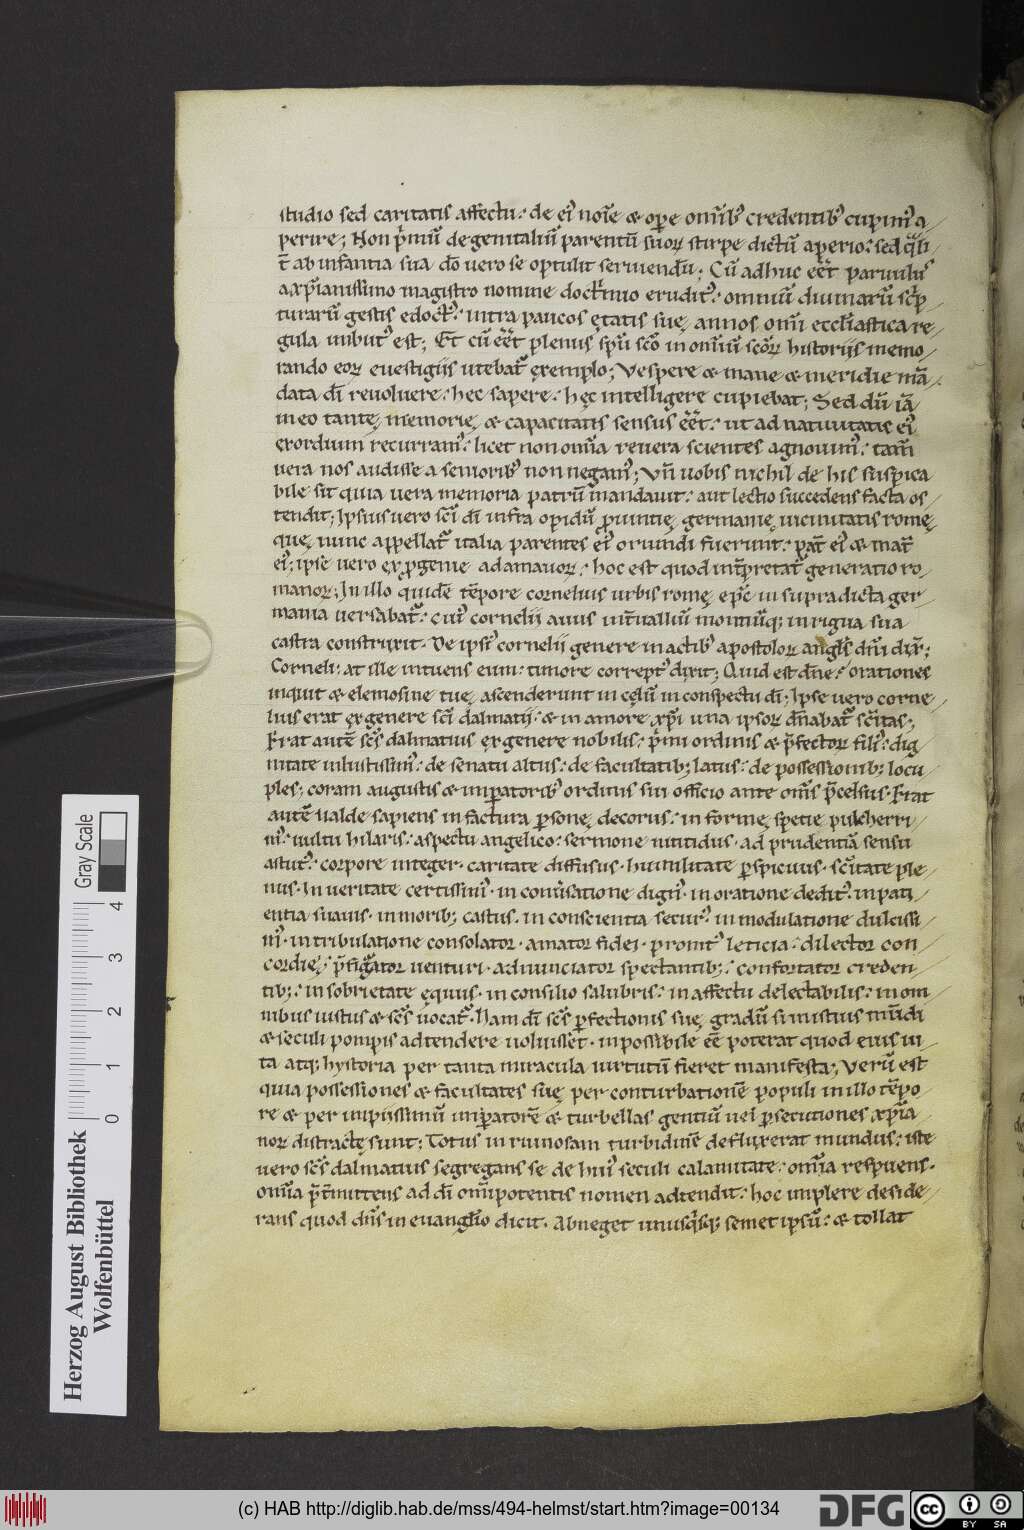 studio sed caritatis affectu: de ei᾽ noīe & opere omīb᾽ credentib᾽ cupim᾽ a
perire; Non p̄mū de genitaliū parentū suoꝝ stirpe dictū aperio: sed qͣli
t̄ ab infantia sua dō vero se optulit seruiendū; Cū adhuc eēt paruulus
a xp̄ianissimo magistro nomine doctrinio erudit᾽: omniū diuinarū sc̄p
turarū gestis edoct᾽: intra paucos ętatis suę annos omī eccl̄iastica re
gula imbut᾽ est; Et cū eēt plenus sp̄u sc̄o in omīū sc̄oꝝ historijs memo
rando eoꝝ euestigiis utebat᾽ exemplo; Vespere & mane & meridie mā
data dī reuoluere: hec sapere: hęc intelligere cupiebat; Sed dū iā
in eo tantę memorię & capacitatis sensus eēt: ut ad natiuitatis ei᾽
exordium recurram᾽: licet non omīa reuera scientes agnouim᾽: tam̄
uera nos audisse a seniorib᾽ non negam᾽; Vn̄ uobis nichil de his suspica
bile sit quia uera memoria patrū mandauit: aut lectio succedens facta os
tendit; Ipsius uero sc̄i dī infra opidū ꝓuintię germanię uicinitatis romę
quę nunc appellat᾽ italia parentes ei᾽ oriundi fuerunt: pat̄ ei᾽ & mat̄
ei᾽; ipse uero ex ꝓgenie adamauoꝝ: hoc est quod int̄pretat᾽ generatio ro
manoꝝ; In illo quidē tēpore cornelius urbis romę ep̄c in supradicta ger
mania uersabat᾽: cui᾽ cornelii auus int̄uallū montiūq; inrigua sua
castra construxit. De ipsi᾽ cornelii genere in actib᾽ apostoloꝝ angl̄s dn̄i dix̄;
Corneli: at ille intuens eum: timore correpT᾽ dixit; Quid est dn̄e: orationes
inquit & elemosine tuę ascenderunt in cęlū in conspectu dī; Ipse uero corne
lius erat ex genere sc̄i dalmatii: & in amore xp̄i una ipsoꝝ dn̄abat᾽ sc̄itas;
Erat autē sc̄s dalmatius ex genere nobilis: p̄mi ordinis & p̄fectoꝝ fili᾽: dig
nitate inlustissim᾽: de senatu altus: de facultatib; latus: de possessionib; locu
ples; coram augustis & imꝑatorib᾽ orditus sui officio ante om̄s p̄celsus. Erat
autē ualde sapiens in factura ꝑsonę decorus: in formę spetie pulcherri
m᾽: uultu hilaris: aspectu angelico: sermone nitidus. ad prudentiā sensu
astut᾽: corpore integer. caritate diffusus. humilitate ꝑspicuus. sc̄itate ple
nus. In ueritate certissim᾽. in conu̓satione dign᾽. in oratione dedit᾽. in pati
entia suauis. in morib; castus. in conscientia secur᾽. in modulatione dulcissi
m᾽. in tribulatione consolator. amator fidei. promt᾽ leticia: dilector con
cordię: p̄figator uenturi. adnunciator spectantib;: confortator creden
tib;: in sobrietate ęquus. in consilio salubris: in affectu delectabilis: in om
nibus iustus & sc̄s uocat᾽. Nam dī sc̄s ꝑfectionis suę gradū si in istius mūdi
& seculi pompis adtendere uoluisset. inpossibile eē poterat quod eius ui
ta atq; hystoria per tanta miracula uirtutū fieret manifesta; Verū est
quia possessiones & facultates suę per conturbationē populi in illo tēpo
re & per impiissimū imꝑatorē & turbellas gentiū uel ꝑsecutiones xp̄ia
noꝝ distractę sunt; Totus in ruinosam turbidinē defluxerat mundus: iste
uero sc̄s dalmatius segregans se de hui᾽ seculi calamitate: omīa respuens.
omīa p̄t̄mittens ad dī om̄ipotentis nomen adtendit: hoc implere deside
rans quod dn̄s in euangl̄io dicit. Abneget unusq̄sq; semet ipsū: & tollat
Herzog August Bibliothek
Wolfenbüttel
Gray Scale
0 1 2 3 4
(c) HAB http://diglib.hab.de/mss/494-helmst/start.htm?image=00134
DFG
cc BY SA